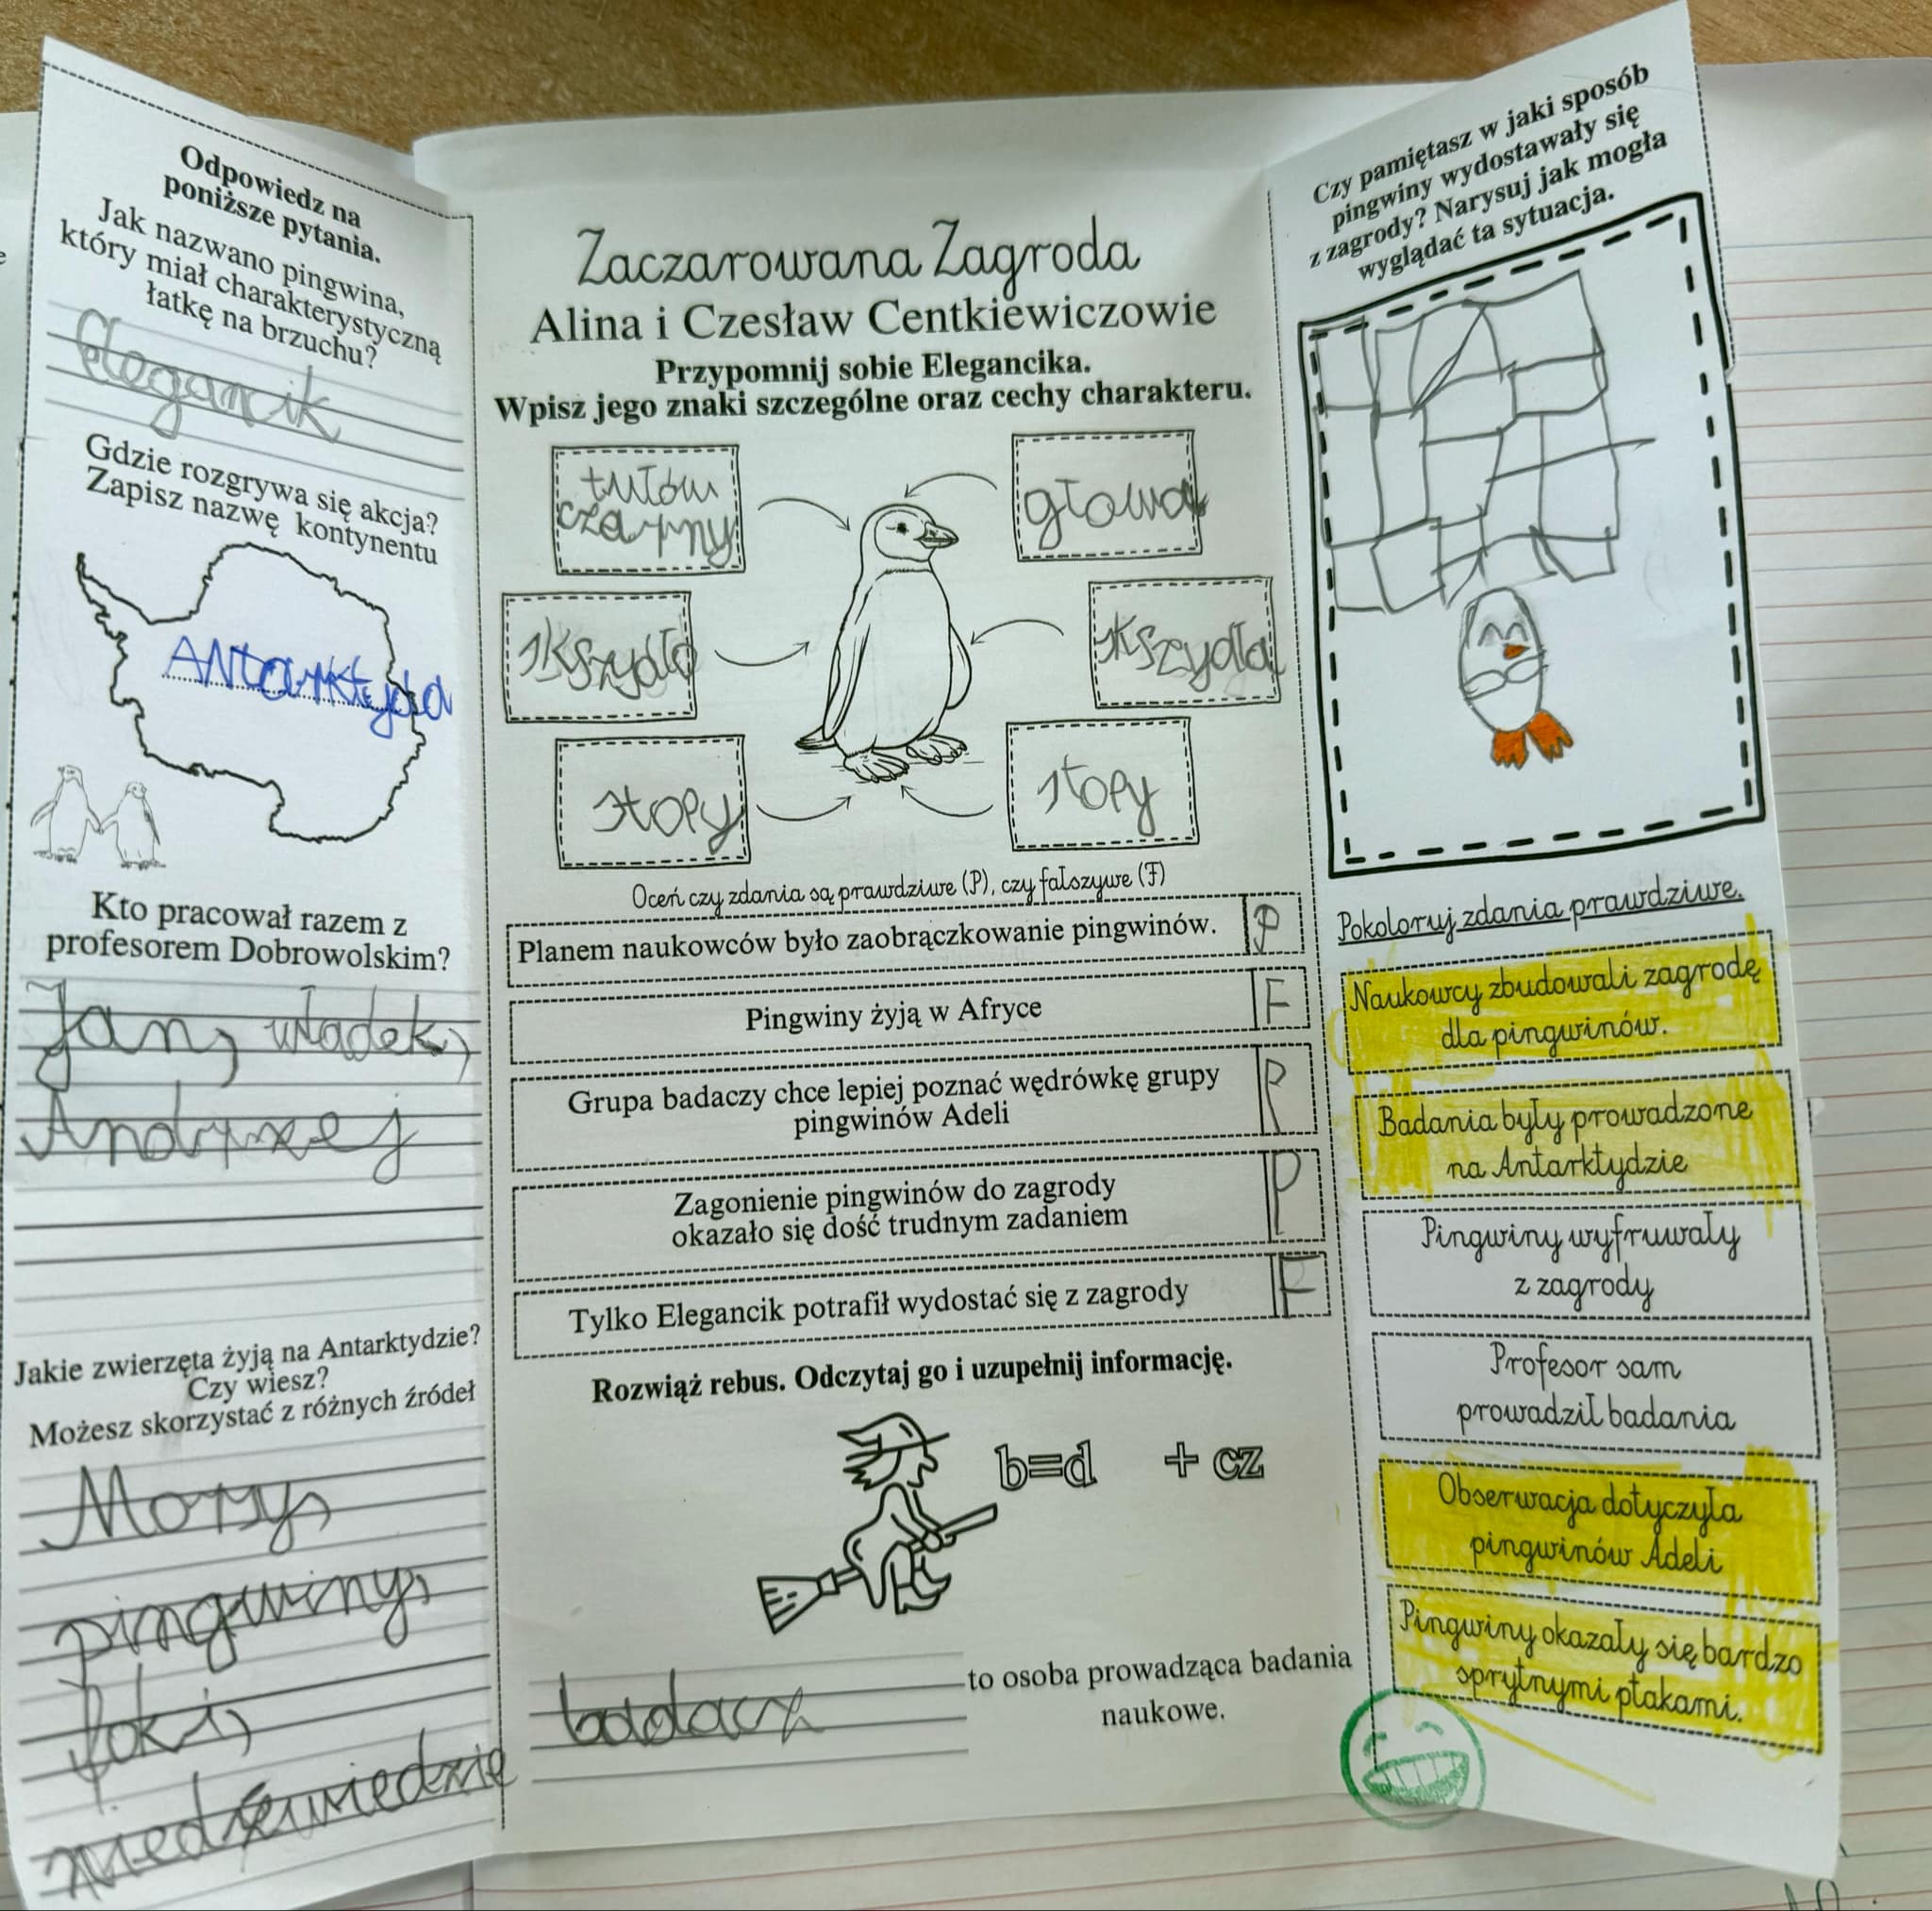 Odpowiedz na
poniższe pytania.
Jak nazwano pingwina,
który miał charakterystyczną
łatkę na brzuchu?
Elegancik
Gdzie rozgrywa się akcja?
Zapisz nazwę kontynentu
ANtarktyda
Kto pracował razem z
profesorem Dobrowolskim?
Jan, władek,
Andrzej
Jakie zwierzęta żyją na Antarktydzie?
Czy wiesz?
Możesz skorzystać z różnych źródeł
Morsy,
pingwiny,
foki,
niedźwiedzie
Zaczarowana Zagroda
Alina i Czesław Centkiewiczowie
Przypomnij sobie Elegancika.
Wpisz jego znaki szczególne oraz cechy charakteru.
tułów
czarny
głowa
skszydło
skszydla
stopy
stopy
Oceń czy zdania są prawdziwe (P), czy fałszywe (F)
Planem naukowców było zaobrączkowanie pingwinów. P
Pingwiny żyją w Afryce F
Grupa badaczy chce lepiej poznać wędrówkę grupy
pingwinów Adeli
Zagonienie pingwinów do zagrody P
okazało się dość trudnym zadaniem
Tylko Elegancik potrafił wydostać się z zagrody F
Rozwiąż rebus. Odczytaj go i uzupełnij informację.
b=d + cz
badacz to osoba prowadząca badania
naukowe.
Czy pamiętasz w jaki sposób
pingwiny wydostawały się
z zagrody? Narysuj jak mogła
wyglądać ta sytuacja.
Pokoloruj zdania prawdziwe.
Naukowcy zbudowali zagrodę
dla pingwinów.
Badania były prowadzone
na Antarktydzie
Pingwiny wyfruwały
z zagrody
Profesor sam
prowadził badania
Obserwacja dotyczyła
pingwinów Adeli
Pingwiny okazały się bardzo
sprytnymi ptakami.